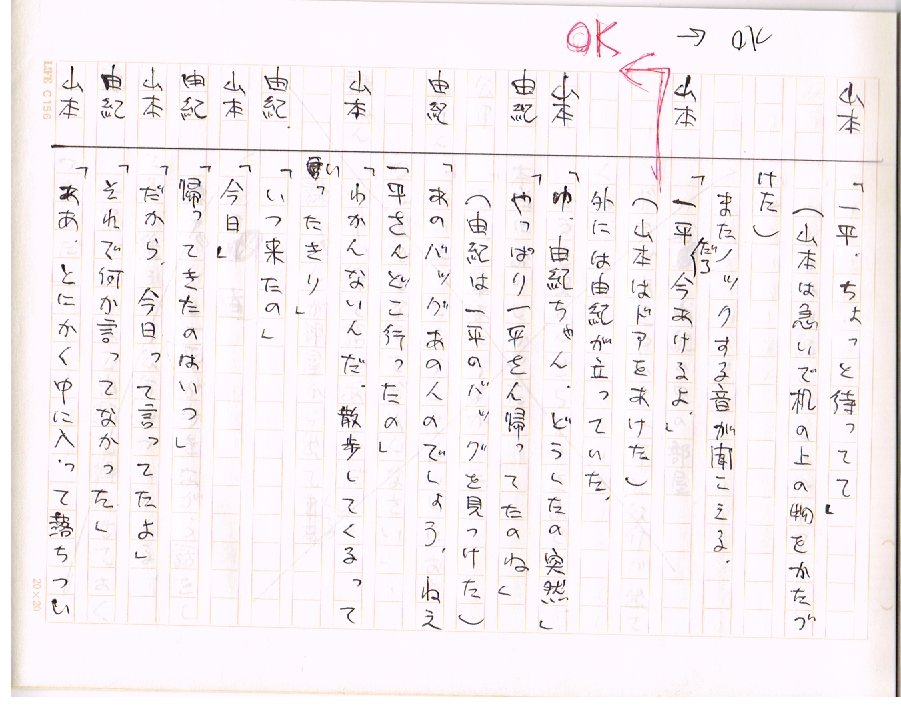 OK → OK
山本「一平、ちょっと待ってて」
(山本は急いで机の上の物をかたづ
けた)
またノックする音が聞こえる.
山本「一平だろ 今あけるよ.」
(山本はドアをあけた)
外には由紀が立っていた.
山本「ゆ、由紀ちゃん.どうしたの突然.」
由紀「やっぱり一平さん帰ってたのね」
(由紀は一平のバッグを見つけた)
由紀「あのバッグあの人のでしょう,ねえ
一平さんどこ行ったの」
山本「わかんないんだ.散歩してくるって
いったきり」
由紀「いつ来たの」
山本「今日」
由紀「帰ってきたのはいつ」
山本「だから,今日って言ってたよ」
由紀「それで何か言ってなかった」
山本「ああ.とにかく中に入って落ちつい
LIFE C156
20×20